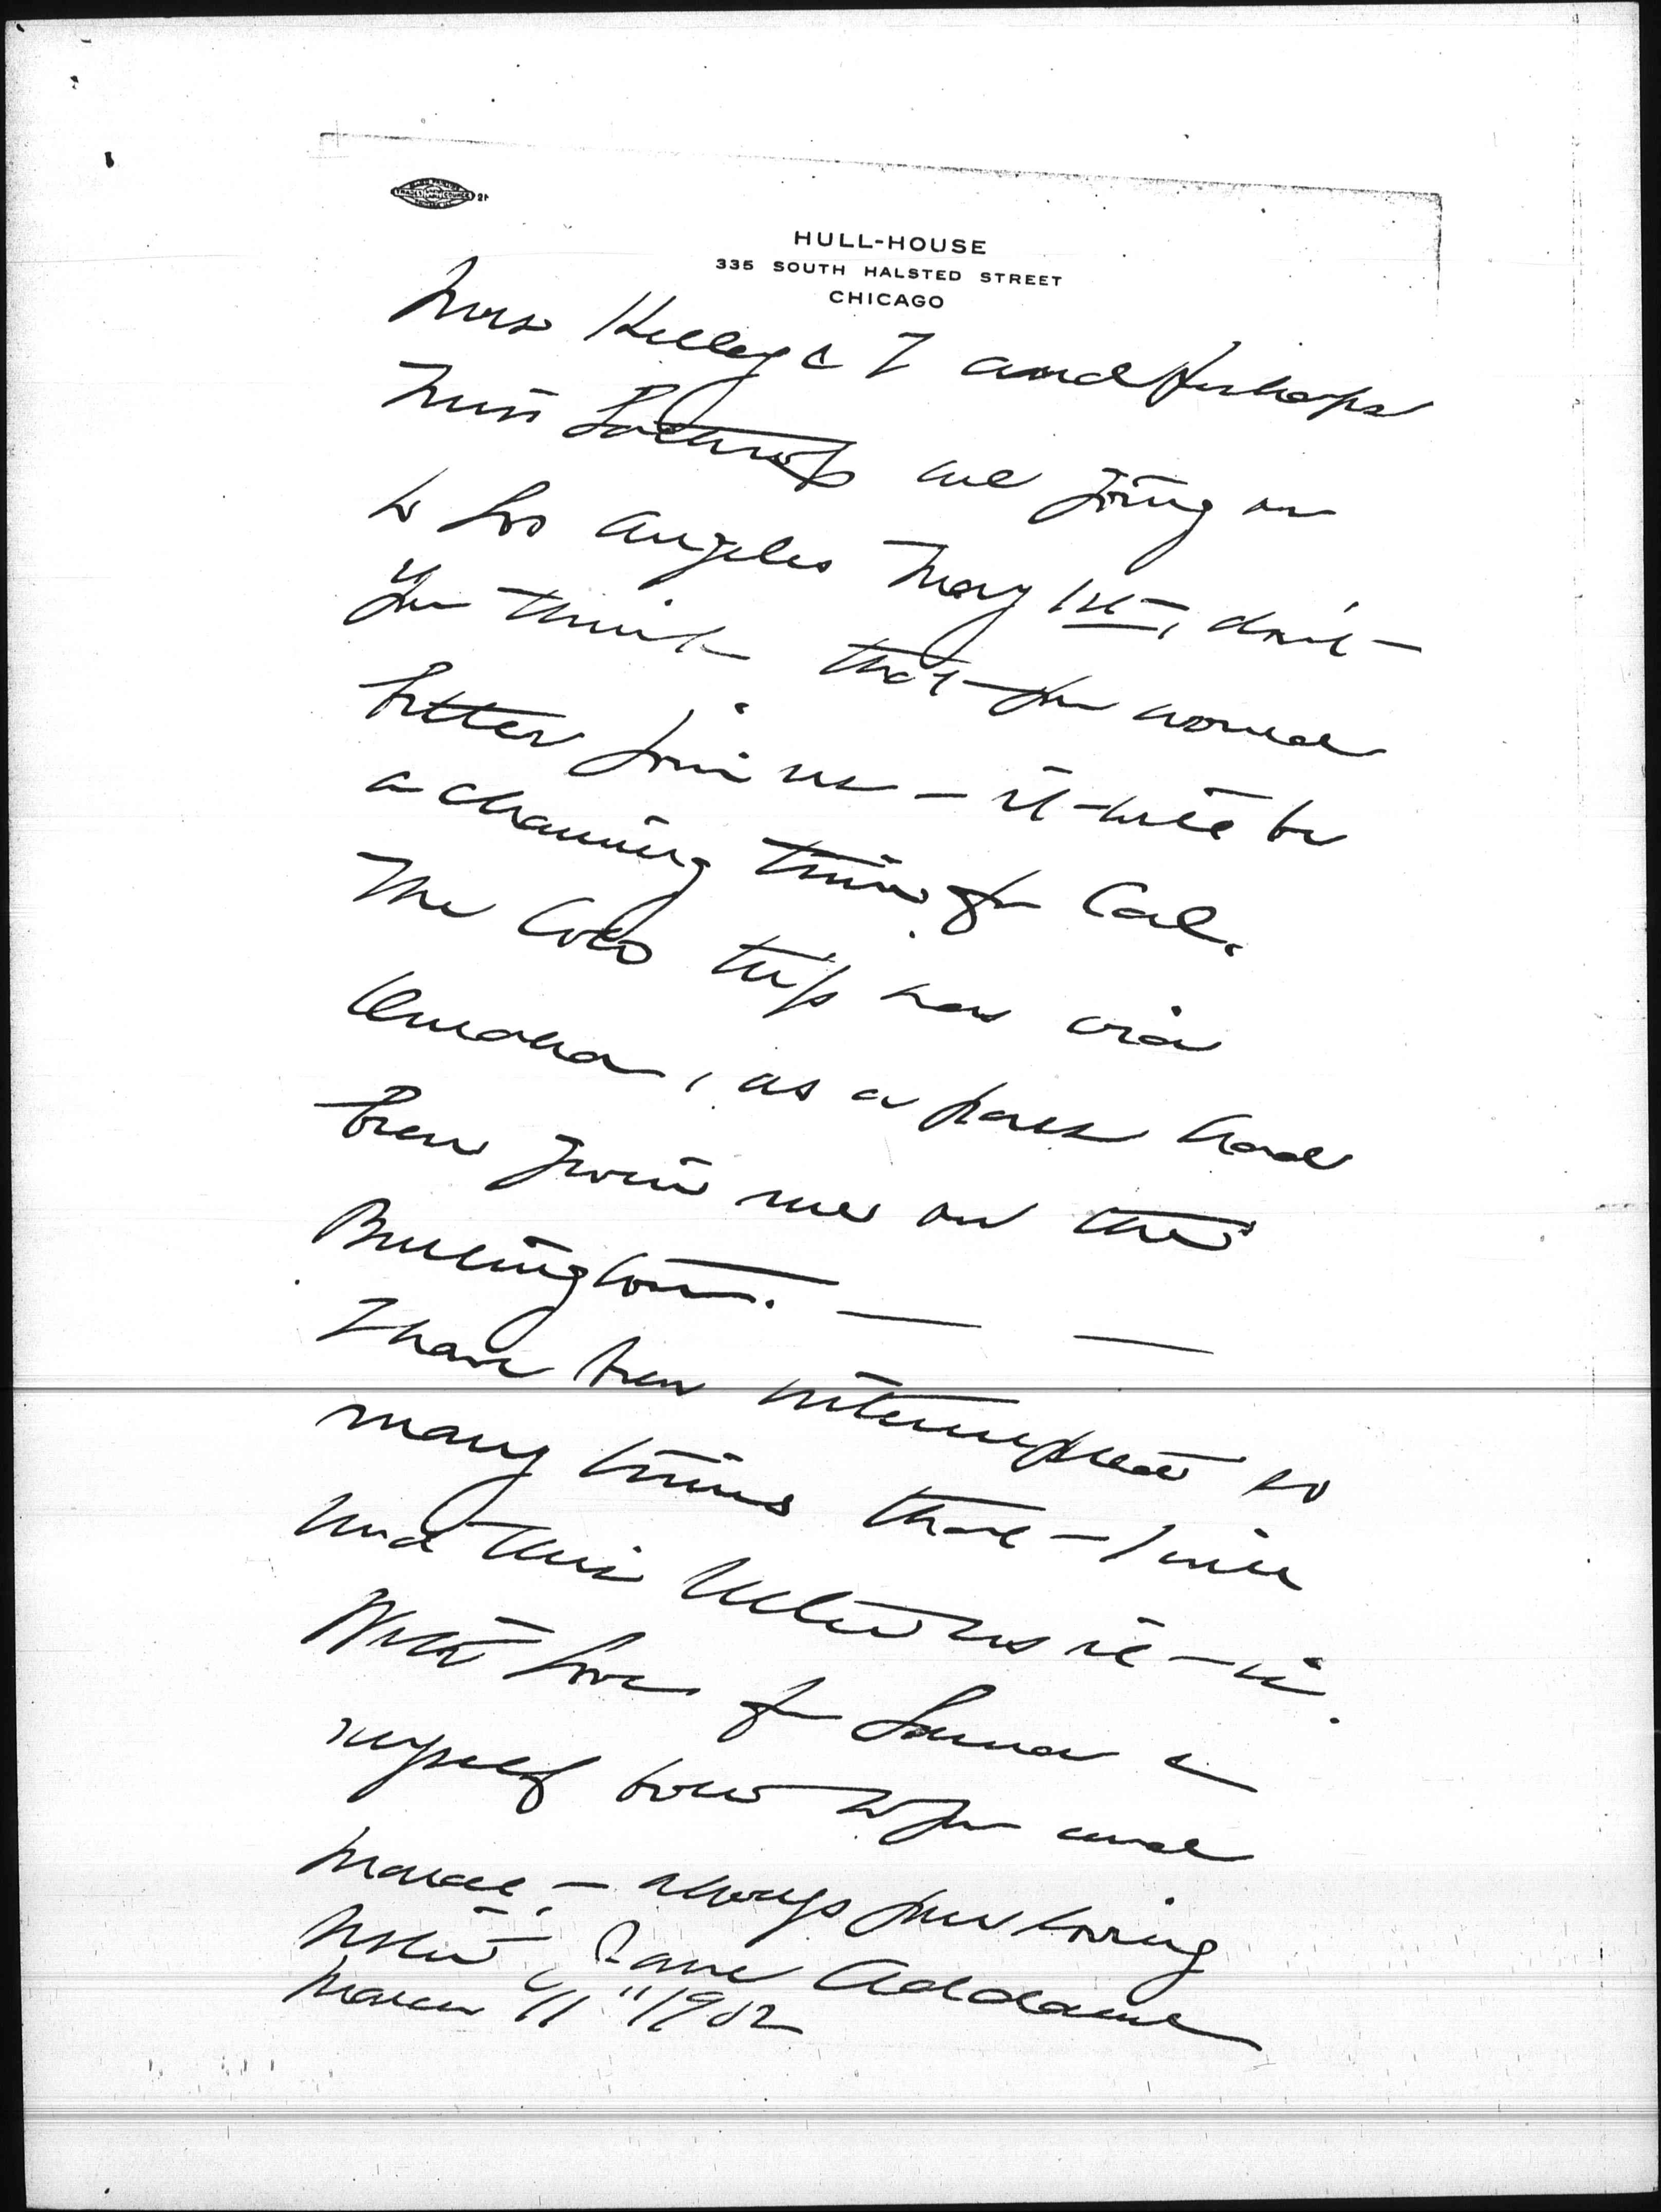 HULL-HOUSE
335 SOUTH HALSTED STREET
CHICAGO
Mrs Kelley & I and perhaps
Miss Lathrop are going on
to Los Angeles May 1st, don't
you think that you would
better join us – it will be
a charming time for Cal.
The Colo trip was via
Omaha, as a pass had
been given me on the
Burlington. — —
I have been interrupted so
many times that I will
send this letter as it is.
With love from Laura &
myself both to you and
Marcet – always your loving
sister, Jane Addams
March 11" 1902